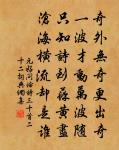 奇外無奇更出奇
一波才動萬波隨
只知詩到蘇黃盡
滄海橫流却是誰
元好問論詩三十首二
十二詞典網